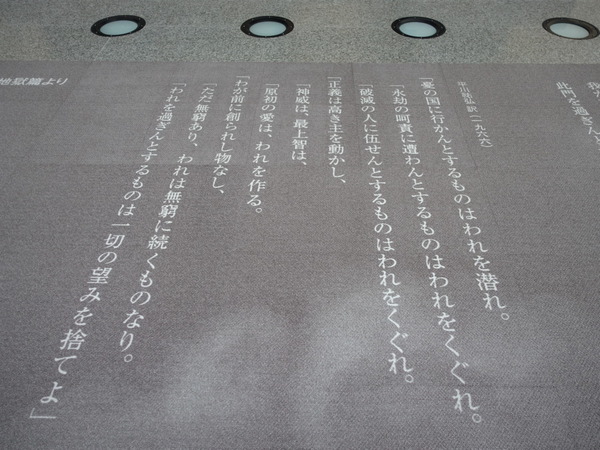 此門を過ぎんと
平川祐弘 訳(一九六六)
「憂の国に行かんとするものはわれを潜れ。
「永劫の呵責に遭わんとするものはわれをくぐれ。
「破滅の人に伍せんとするものはわれをくぐれ。
「正義は高き主を動かし、
「神威は、最上智は、
「原初の愛は、われを作る。
「わが前に創られし物なし、
「ただ無窮あり、われは無窮に続くものなり。
「われを過ぎんとするものは一切の望みを捨てよ」
地獄篇より